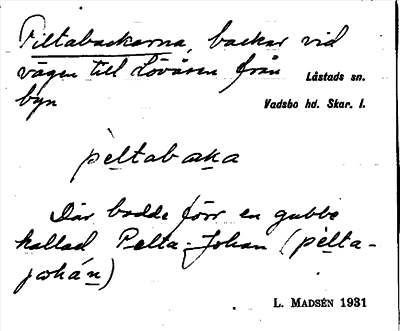 Piltabackarna, backar vid
vägen till Lövåsen från
byn
Låstads sn.
Vadsbo hd. Skar. l.
pèltabaka
Där bodde förr en gubbe
kallad Pelta-Johan (pèlta-
johán)
L. MADSÉN 1931